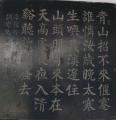 青山招不來偃蹇
誰憐汝歲晚太寒
生喚我溪邊住
山頭明月來本在
天高處夜夜入清
谿聽讀離騷去